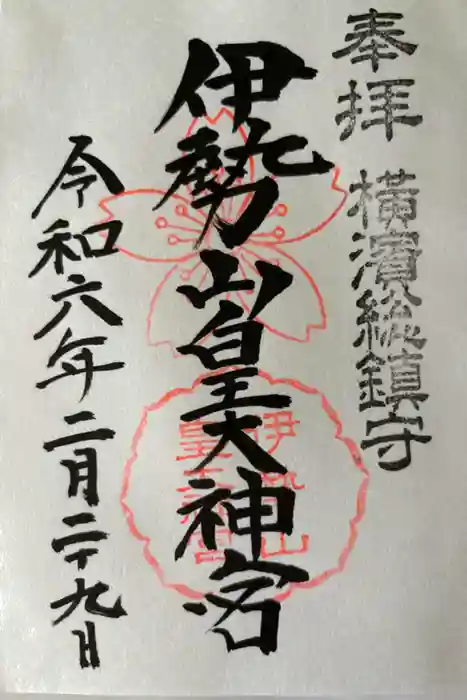 奉拝
横濱総鎮守
伊勢山皇大神宮
伊勢山
皇大神宮
令和六年二月二十九日